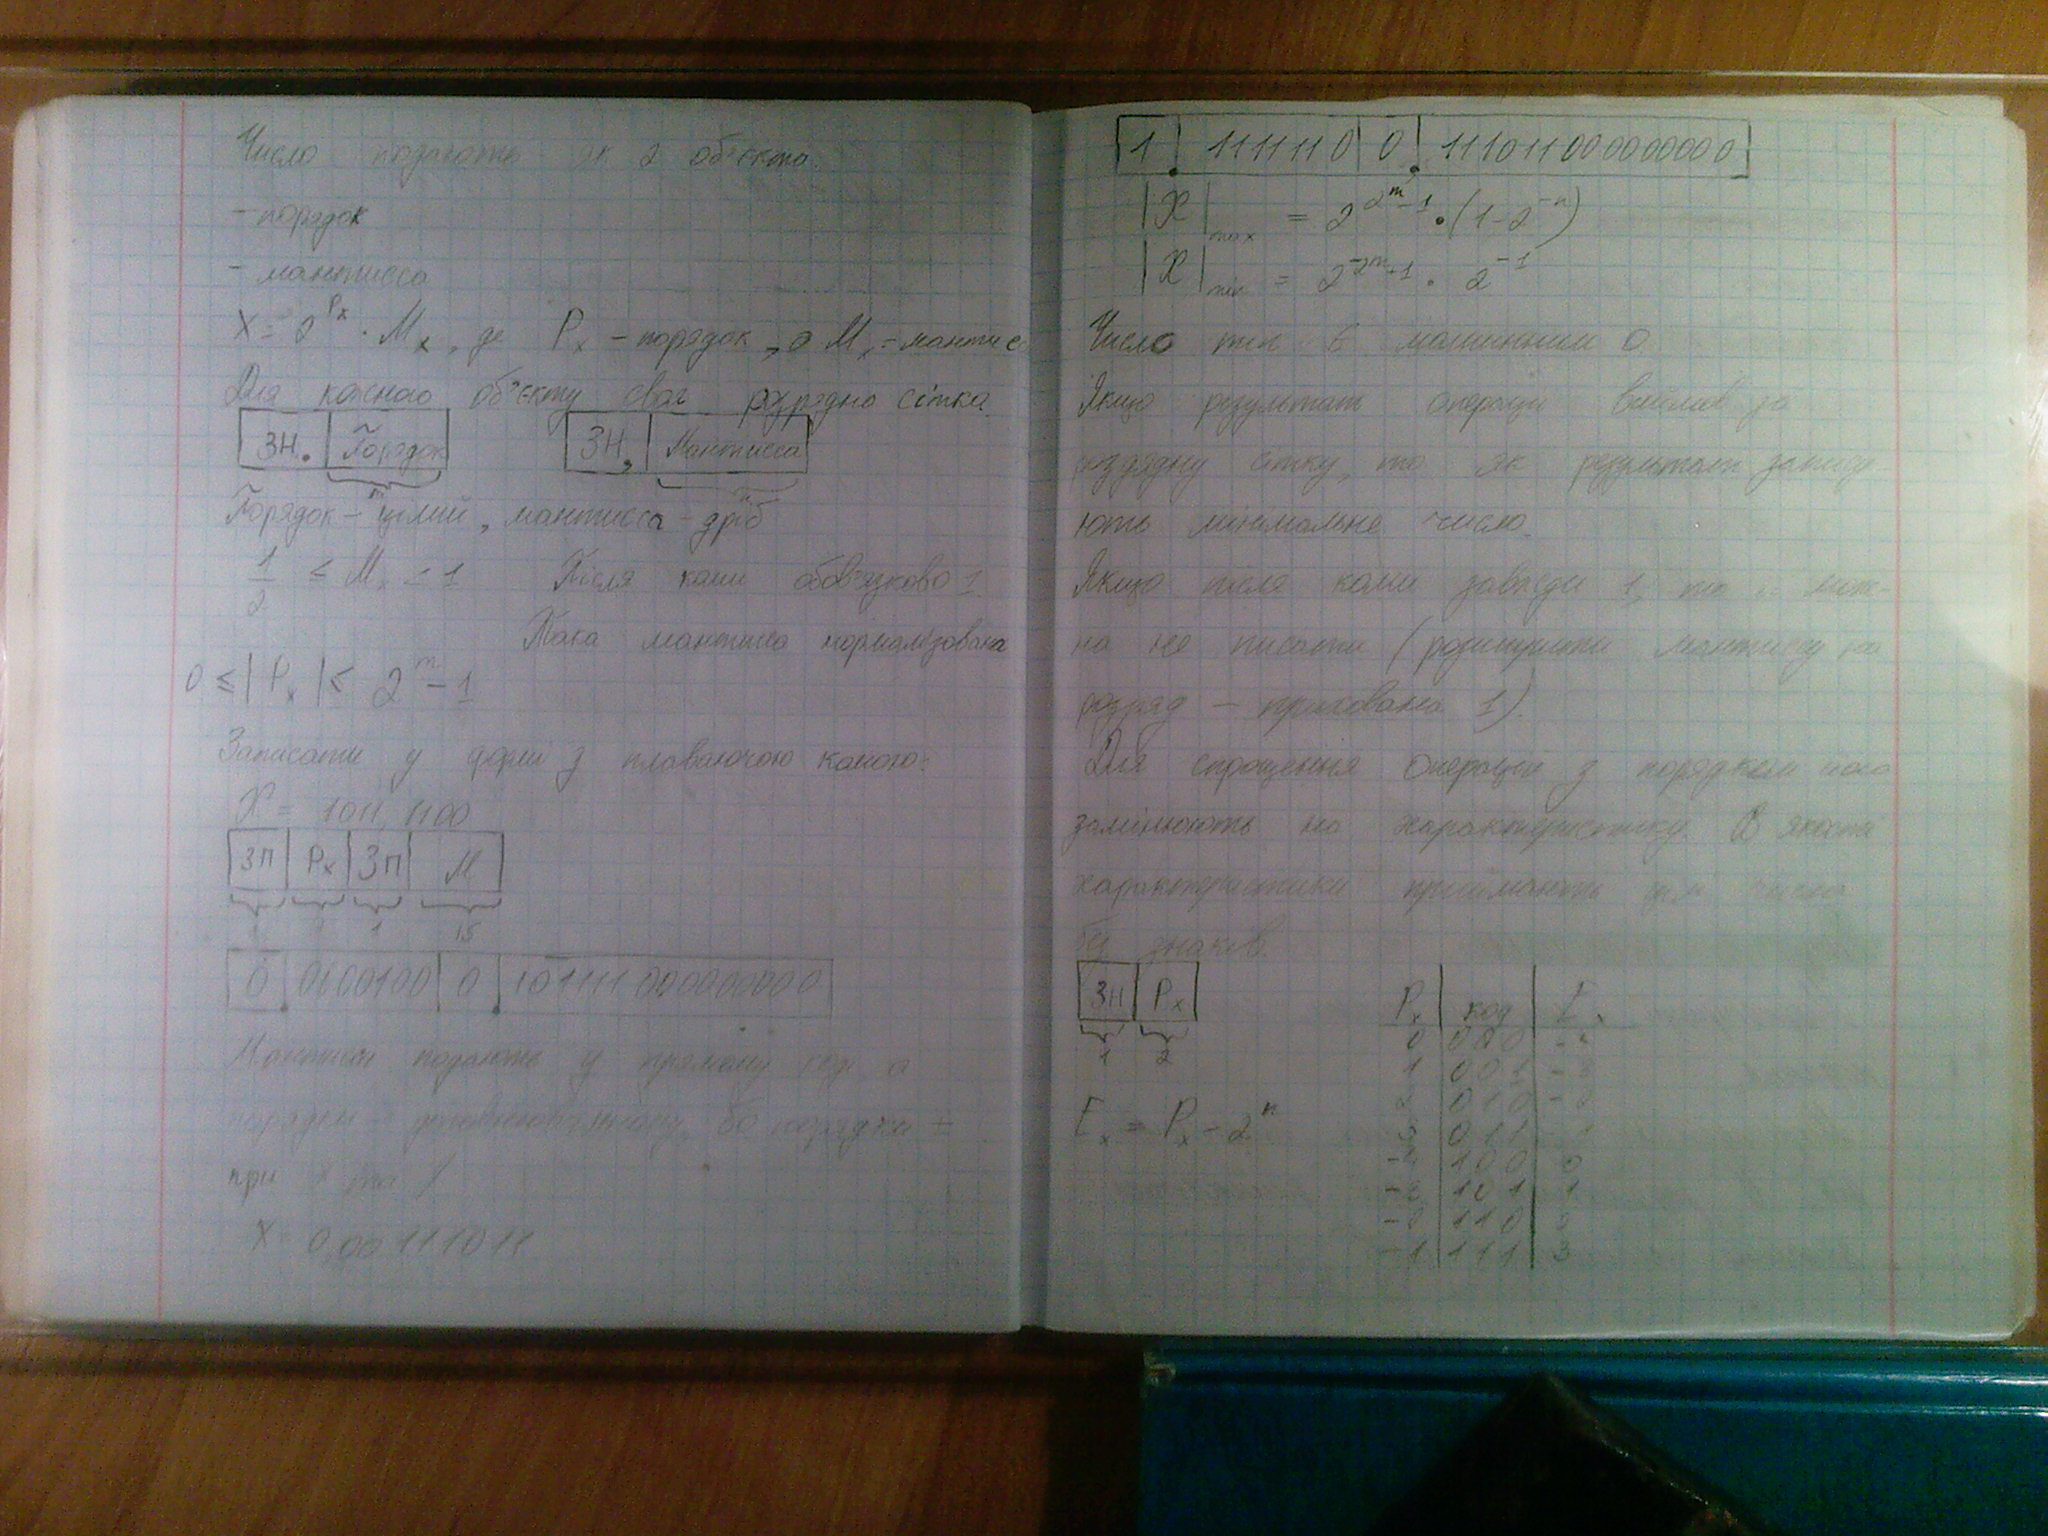 Число подають як 2 об'єкта.
- порядок
- мантисса
X = 2^Px · Mx, де Px - порядок, а Mx - мантис
Для кожного об'єкту своя розрядна сітка
ЗН. Порядок ЗН, Мантисса
m n
Порядок - цілий, мантисса - дріб
1/2 ≤ Mx ≤ 1 Після коми обов'язково 1
Така мантиса нормалізована
0 ≤ |Px| ≤ 2^m - 1
Записати у формі з плаваючою комою:
X = 1011,1100
ЗП Px ЗП M
1 1 15
0 0000100 0 101111000000000
Мантиси подають у прямому коді а
порядки - доповняльному, бо порядки ±
при
X = 0,00111011
1 111110 0 111011000000000
|X|max = 2^(2^m-1) · (1-2^-n)
|X|min = 2^(-2^m+1) · 2^-1
Число min є машинним 0
Якщо результат операції вийшов за
розрядну сітку, то як результат запису
ють мінімальне число.
Якщо після коми завжди 1, то її мож-
на не писати (розширити мантису на
розряд - прихована 1).
Для спрощення операцій з порядком його
замінюють на характеристику. В якості
характеристики приймають цілі числа
без знаків.
ЗН Px
1 2
Ex = Px - 2^n
Px код Ex
0 000
1 001
2 010
011
100 0
101 1
110
-1 111 3